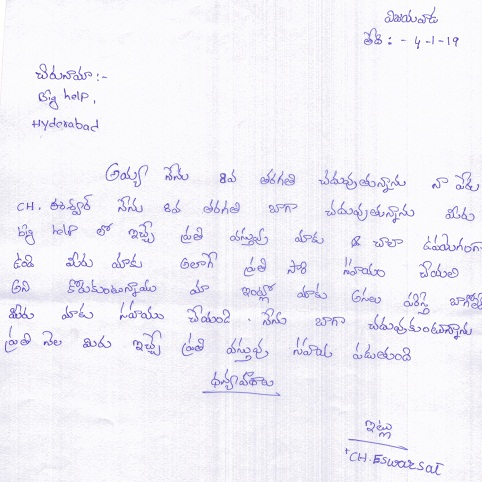 విజయవాడ
తేది : - 4-1-19
చిరునామా :-
Big help,
Hyderabad
అయ్యా నేను 8వ తరగతి చదువుతున్నాను నా పేరు
CH. ఈశ్వర్ నేను 8వ తరగతి బాగా చదువుతున్నాను మీరు
big help లో ఇచ్చే ప్రతి వస్తువు మాకు చాలా ఉపయోగంగా
ఉంది మీరు మాకు అలాగే ప్రతి సారి సహాయం చేయాలి
అని కోరుకుంటున్నాము మా ఇంట్లో మాకు అసలు పరిస్తి బాగోదు
మీరు మాకు సహాయం చేయండి . నేను బాగా చదువుకుంటున్నాను
ప్రతి నెల మీరు ఇచ్చే ప్రతి వస్తువు సహాయ పడుతుంది
ధన్యావాదాలు
ఇట్లు
CH. Eswarsai